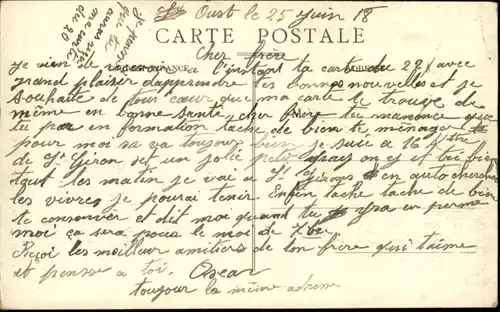 Oust le 25 Juin 18
Je pense
que tu
auras reçu
ma carte
du 20
CARTE POSTALE
Cher frère
je vien de à l'instant ta carte du 22 avec
grand plaisir d'apprendre tes bonnes nouvelles et je
souhaite de tout cœur que ma carte te trouve de
même en bonne santé, cher frère tu m'anonce que
tu pas en formation tache de bien te ménager
pour moi sa va toujours bien je suis a 16 Ktre
de St Giron set un jolie petit mais on y et très bien
tout les matin je vai a St Girons en auto cherché
les vivres je pourai tenir. Enfin tache tache de bien
te conserver et dit moi quand tu ira en perme
moi ça sera pour le moi de 7bre.
Reçoi les meilleur amitiers de ton frère qui t'aime
et pense a toi. Oscar
toujour la même adresse